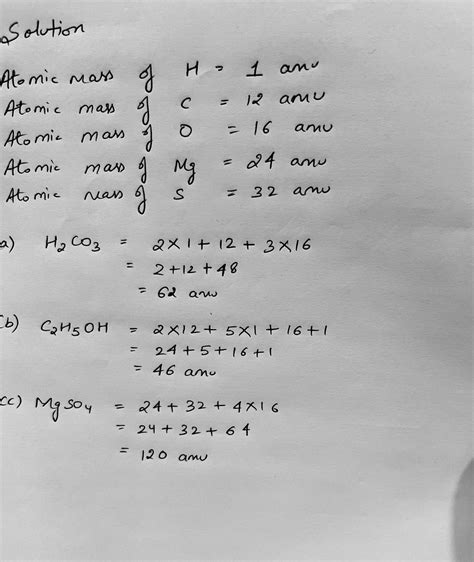 Solution
Atomic mass of H = 1 amu
Atomic mass of C = 12 amu
Atomic mass of O = 16 amu
Atomic mass of Mg = 24 amu
Atomic mass of S = 32 amu
a) H₂CO₃ = 2×1+12+3×16
= 2+12+48
= 62 amu
(b) C₂H₅OH = 2×12+5×1+16+1
= 24+5+16+1
= 46 amu
(c) MgSO₄ = 24+32+4×16
= 24+32+64
= 120 amu